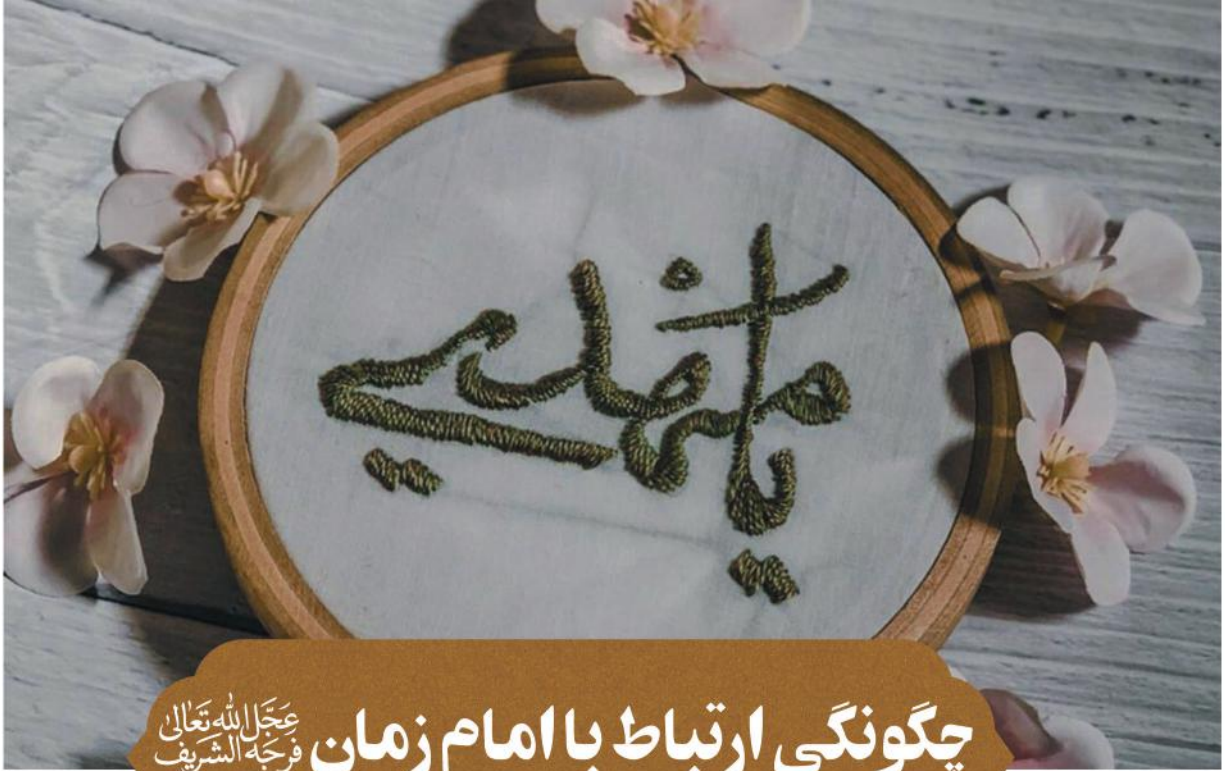 یا مهدی
چگونگی ارتباط با امام زمان عَجَّلَ اللهُ تَعَالیٰ فَرَجَهُ الشَّریف